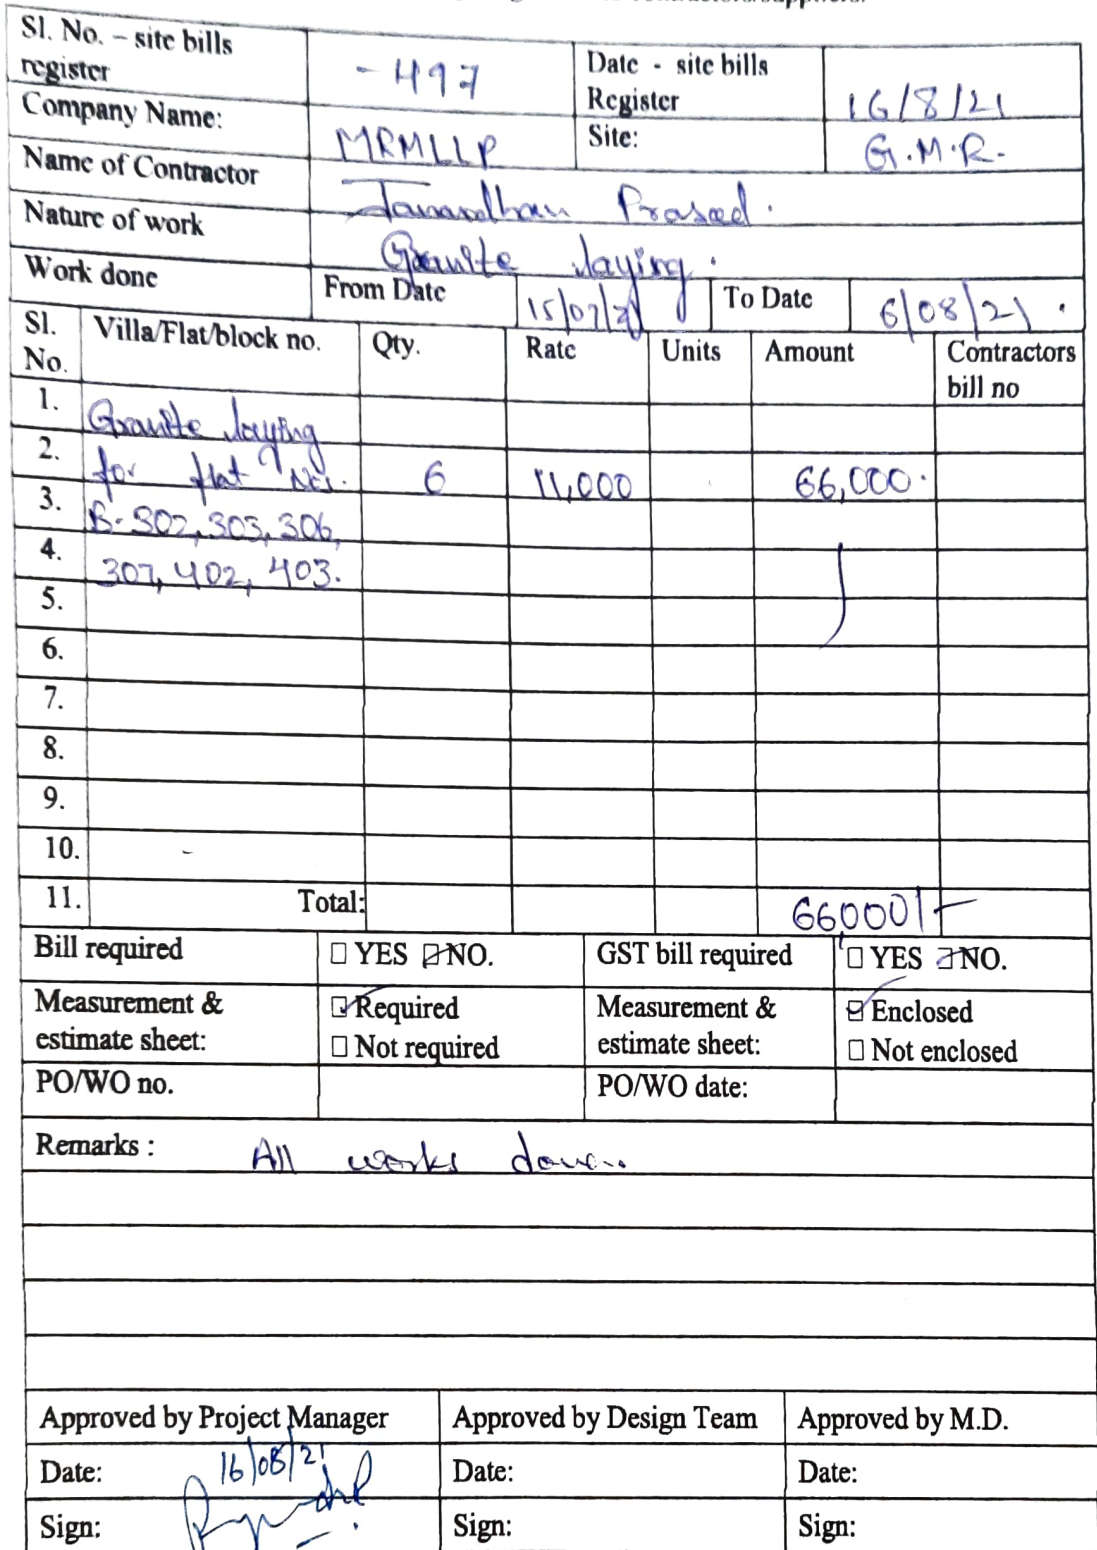 contractors/suppliers.
Sl. No. – site bills register - 497 Date - site bills Register 16/8/21
Company Name: MRMLLP Site: G.M.R.
Name of Contractor Janardhan Prasad.
Nature of work Granite laying.
Work done From Date 15/07/21 To Date 6/08/21.
Sl. No. Villa/Flat/block no. Qty. Rate Units Amount Contractors bill no
1. Granite laying
2. for flat No's. 6 11,000 66,000.
3. B-302, 303, 306,
4. 307, 402, 403.
5.
6.
7.
8.
9.
10. -
11. Total: 66000/-
Bill required □ YES ☑ NO. GST bill required □ YES ☑ NO.
Measurement & estimate sheet: ☑ Required □ Not required Measurement & estimate sheet: ☑ Enclosed □ Not enclosed
PO/WO no. PO/WO date:
Remarks : All works done..
Approved by Project Manager Approved by Design Team Approved by M.D.
Date: 16/08/21 Date: Date:
Sign: Sign: Sign: